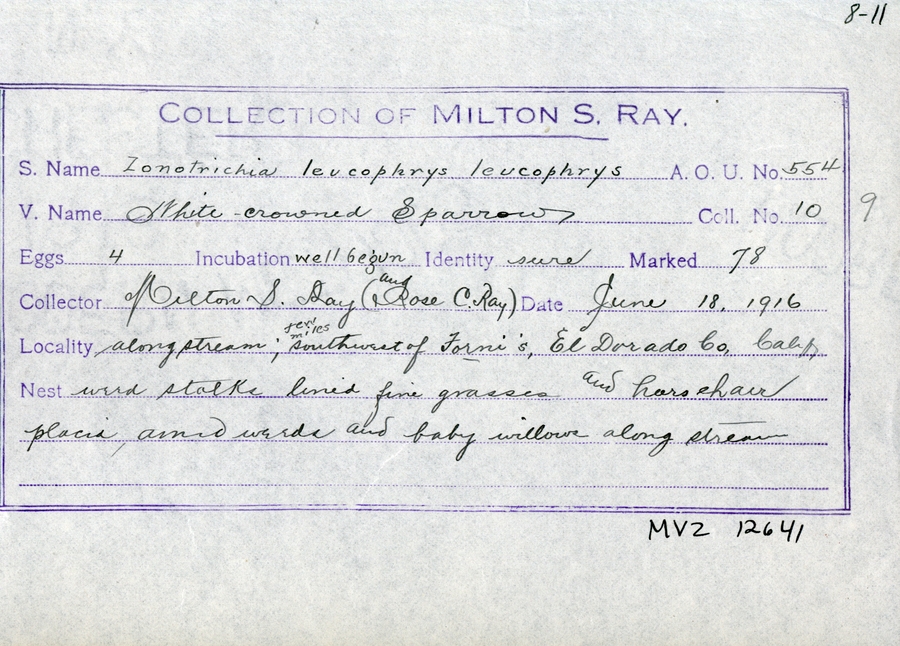 8-11
COLLECTION OF MILTON S. RAY.
S. Name Zonotrichia leucophrys leucophrys A. O. U. No. 554
V. Name White-crowned Sparrow Coll. No. 10 9
Eggs 4 Incubation well begun Identity sure Marked 78
Collector Milton S. Ray (and Rose C. Ray) Date June 18, 1916
Locality along stream; few miles southwest of Forni's, El Dorado Co, Calif,
Nest weed stalks lined fine grasses and horsehair
placed, amid weeds and baby willows along stream
MVZ 12641